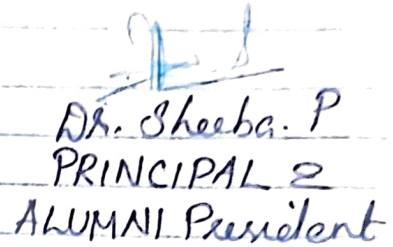 Dr. Sheeba. P
PRINCIPAL &
ALUMNI President